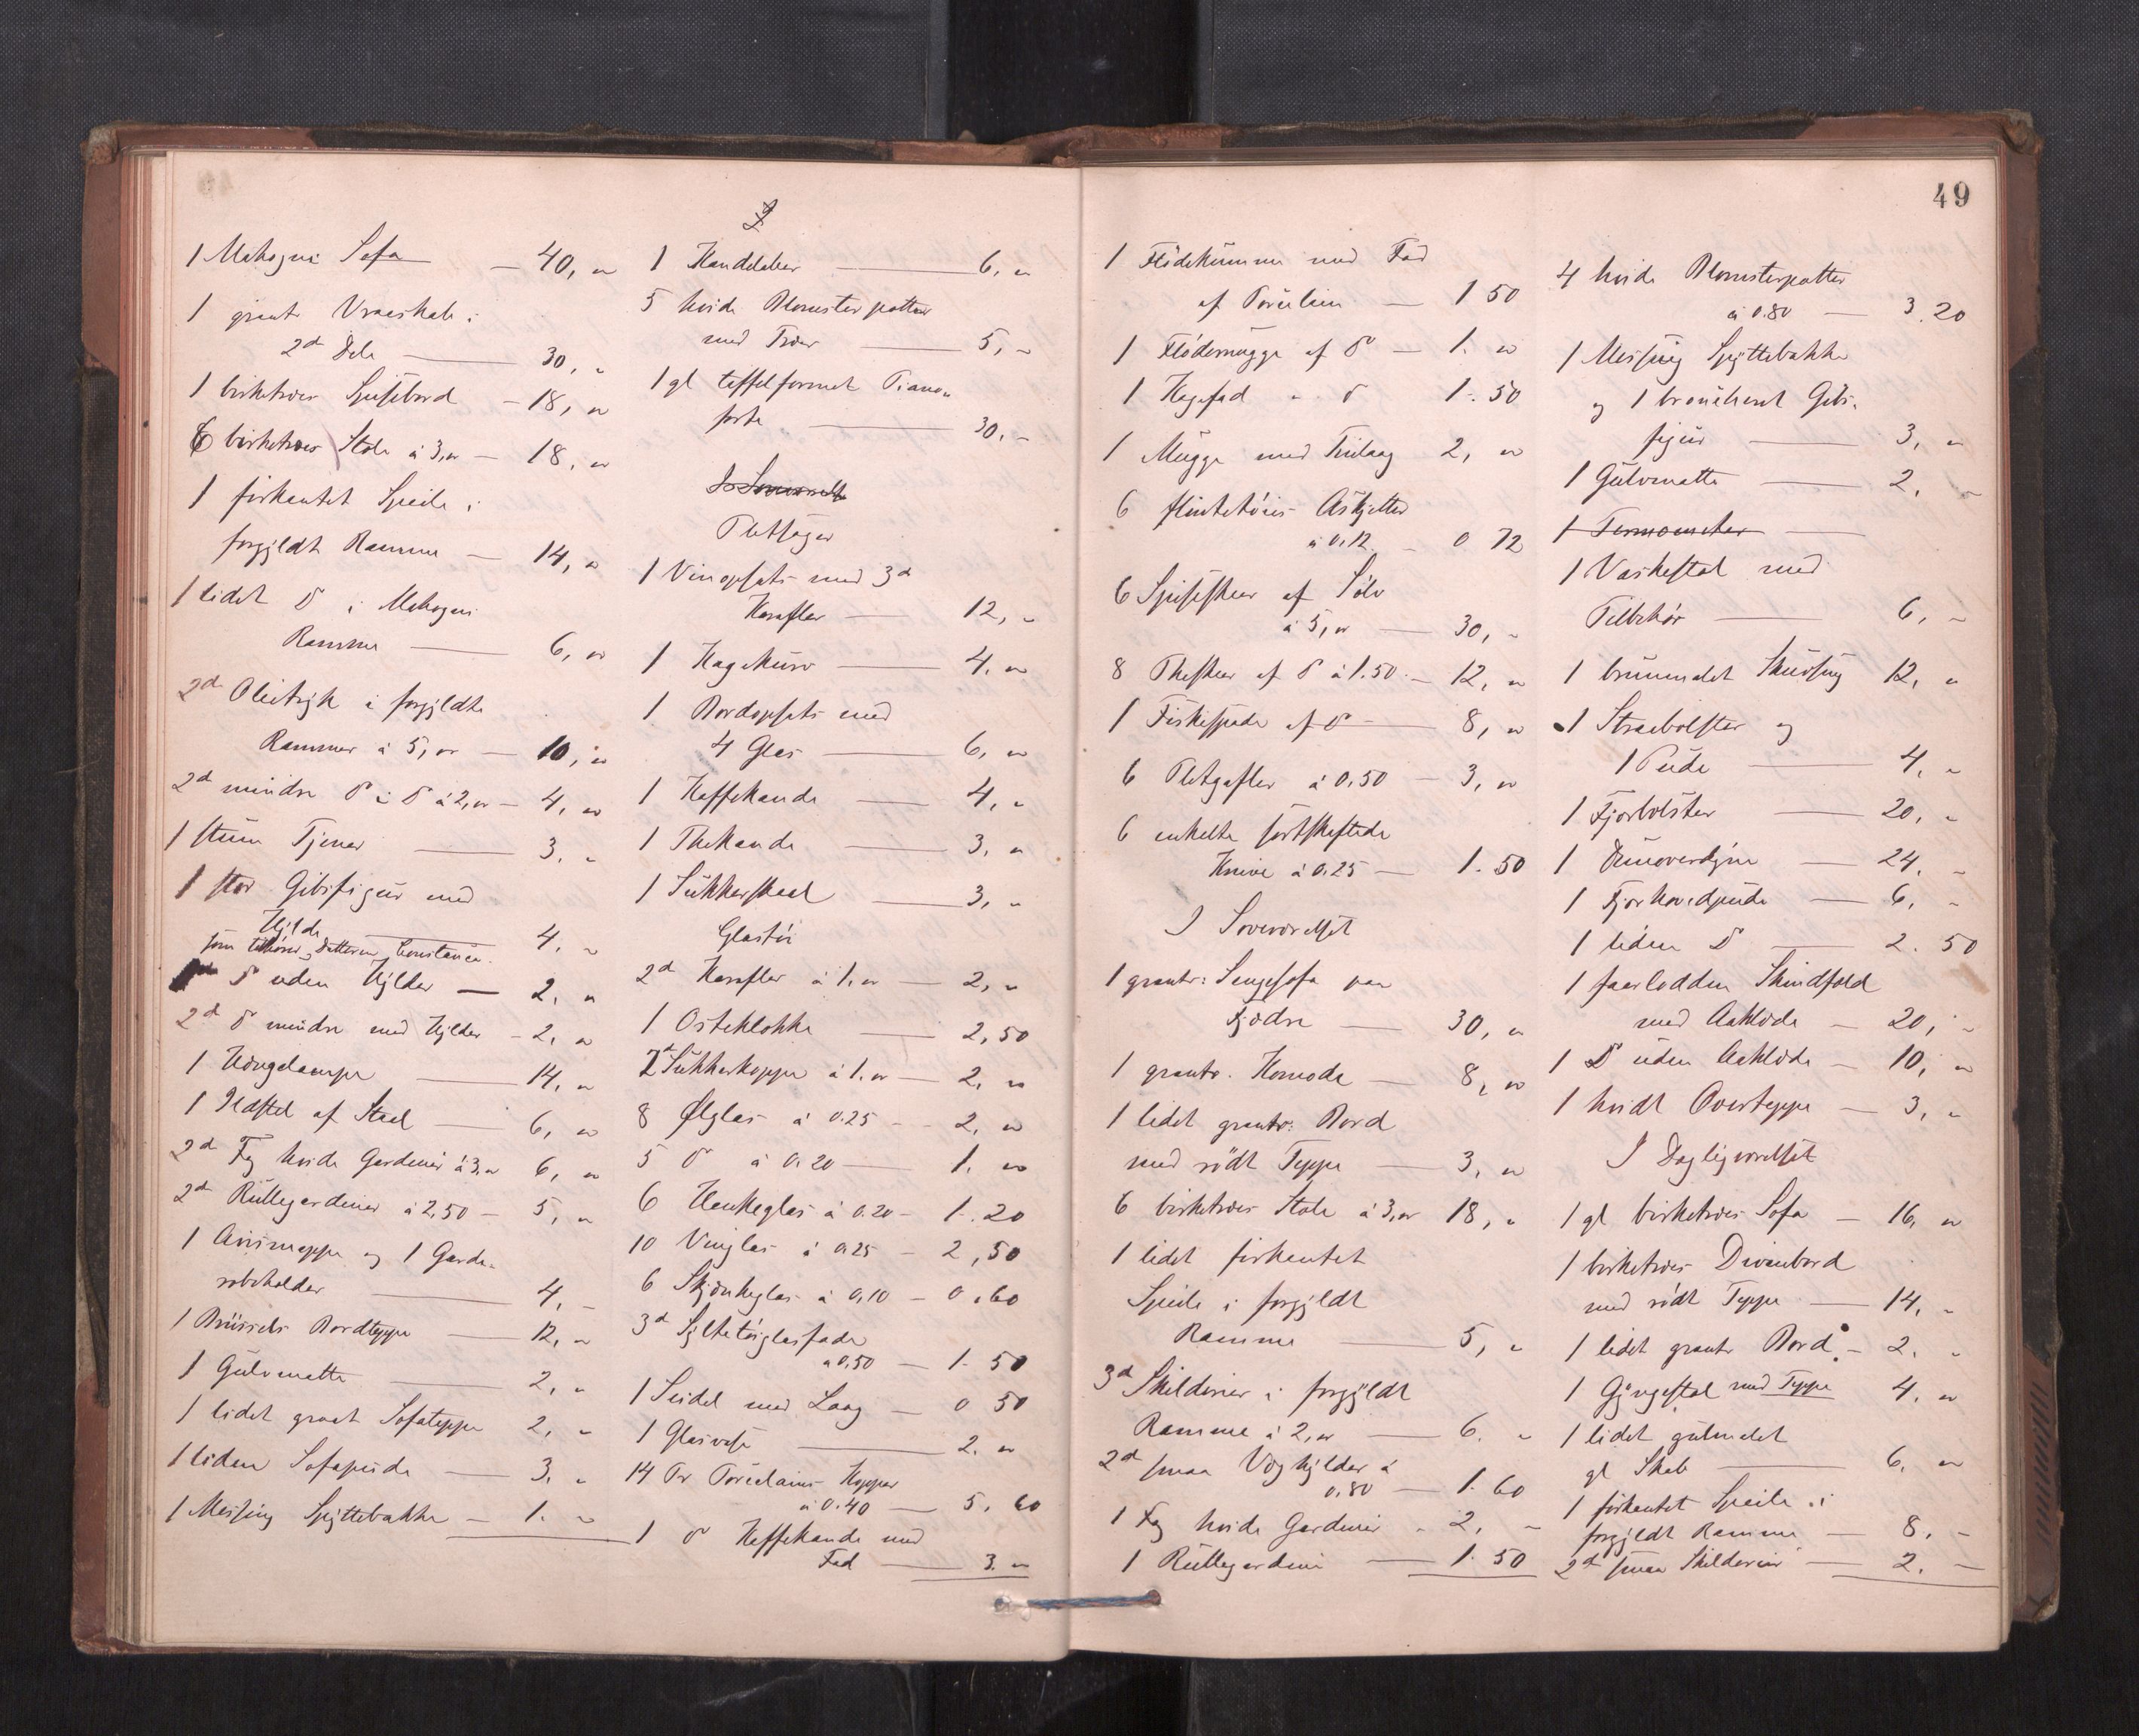 1 Mahogni Sofa — 40, "
1 grant: Vraaskab i
2d Dele — 30, "
1 birketræs Spisebord — 18, "
6 birketræs Stole à 3," — 18, "
1 firkantet Speile i
forgyldt Ramme — 14, "
1 lidet Do i Mahogni
Ramme — 6, "
2d Olietryk i forgyldte
Rammer à 5, " — 10, "
2d mindre Do i Do à 2," — 4, "
1 stum Tjener — 3, "
1 stor Gibsfigur med
Hylde — 4. "
som tilhører Datteren Constance.
Do uden Hylder — 2, "
2d Do mindre med Hylder — 2, "
1 Hængelampe — 14, "
1 Ildstel af Staal — 6, "
2d Fag hvide Gardiner à 3," 6, "
2d Rullegardiner à 2,50 — 5, "
1 Avismappe og 1 Garde-
robeholder — 4, "
1 Brüssels Bordteppe — 12, "
1 Gulvmatte — 2, "
1 lidet graat Sofateppe 2, "
1 liden Sofapude — 3. "
1 Messing Spyttebakke — 1. "
1 Kandelaber — 6, "
5 hvide Blomsterpotter
med Træer — 5, "
1 gl taffelformet Piano-
forte — 30, "
Pletsager
1 Vinopsats med 3d
Karafler — 12, "
1 Kagekurv — 4. "
1 Bordopsats med
4 Glas — 6, "
1 Kaffekande — 4, "
1 Thekande — 3, "
1 Sukkerskaal — 3, "
Glastøi
2d Karafler à 1." — 2, "
1 Osteklokke — 2,50
2d Sukkerkopper à 1." — 2, "
8 Ølglas à 0.25 — 2. "
5 Do à 0.20 — 1. "
6 Hankeglas à 0.20 — 1.20
10 Vinglas à 0.25 — 2,50
6 Skjænkeglas à 0,10 — 0.60
3d Syltetøiglasfade
à 0,50 — 1.50
1 Seidel med Laag — 0 50
1 Glasvase — 2. "
14 Pr Porcelains Kopper
à 0.40 — 5. 60
1 Do Kaffekande med
Fad — 3. "
49
1 Flødekumme med Fad
af Porcelain — 1 50
1 Flødemugge af Do — 1. "
1 Kagefad " Do 1.50
1 Mugge med Tinlaag 2, "
6 flintetøis Asjetter
à 0.12 — 0 72
6 Spiseskeer af Sølv
à 5," — 30, "
8 Theskeer af Do à 1.50 — 12, "
1 Fiskespade af Do — 8, "
6 Pletgafler à 0,50 — 3, "
6 enkelte sortskaftede
Knive à 0.25 — 1.50
I Soveværelset
1 grantr: Sengesofa paa
Fjædre — 30, "
1 grantr. Komode — 8, "
1 lidet grantr: Bord
med rødt Teppe — 3, "
6 birketræs Stole à 3," 18, "
1 lidet firkantet
Speile i forgyldt
Ramme — 5, "
3d Skilderier i forgyldt
Ramme à 2," — 6. "
2d smaa Væghylder à
0.80 — 1.60
1 Fag hvide Gardiner " 2, "
1 Rullegardin — 1.50
4 hvide Blomsterpotter
à 0.80 — 3.20
1 Messing Spyttebakke
og 1 broncheret Gibs-
figur — 3, "
1 Gulvmatte — 2, "
1 Termometer —
1 Vaskestol med
Tilbehør — 6, "
1 brunmalet Skudseng 12, "
1 Straebolster og
1 Pude — 4, "
1 Fjærbolster — 20, "
1 Dunoverdyne — 24, "
1 Fjærhovedpude — 6, "
1 liden Do — 2. 50
1 faarlodden Skindfeld
med Aaklæde — 20, "
1 Do uden Aaklæde — 10, "
1 hvidt Overteppe — 3, "
I Dagligværelset
1 gl birketræs Sofa — 16, "
1 birketræs Divanbord
med rødt Teppe — 14, "
1 lidet grantr Bord — 2. "
1 Gyngestol med Teppe 4. "
1 lidet gulmalet
gl Skab — 6. "
1 firkantet Speile i
forgyldt Ramme — 8. "
2d smaa Skilderier — 2. "